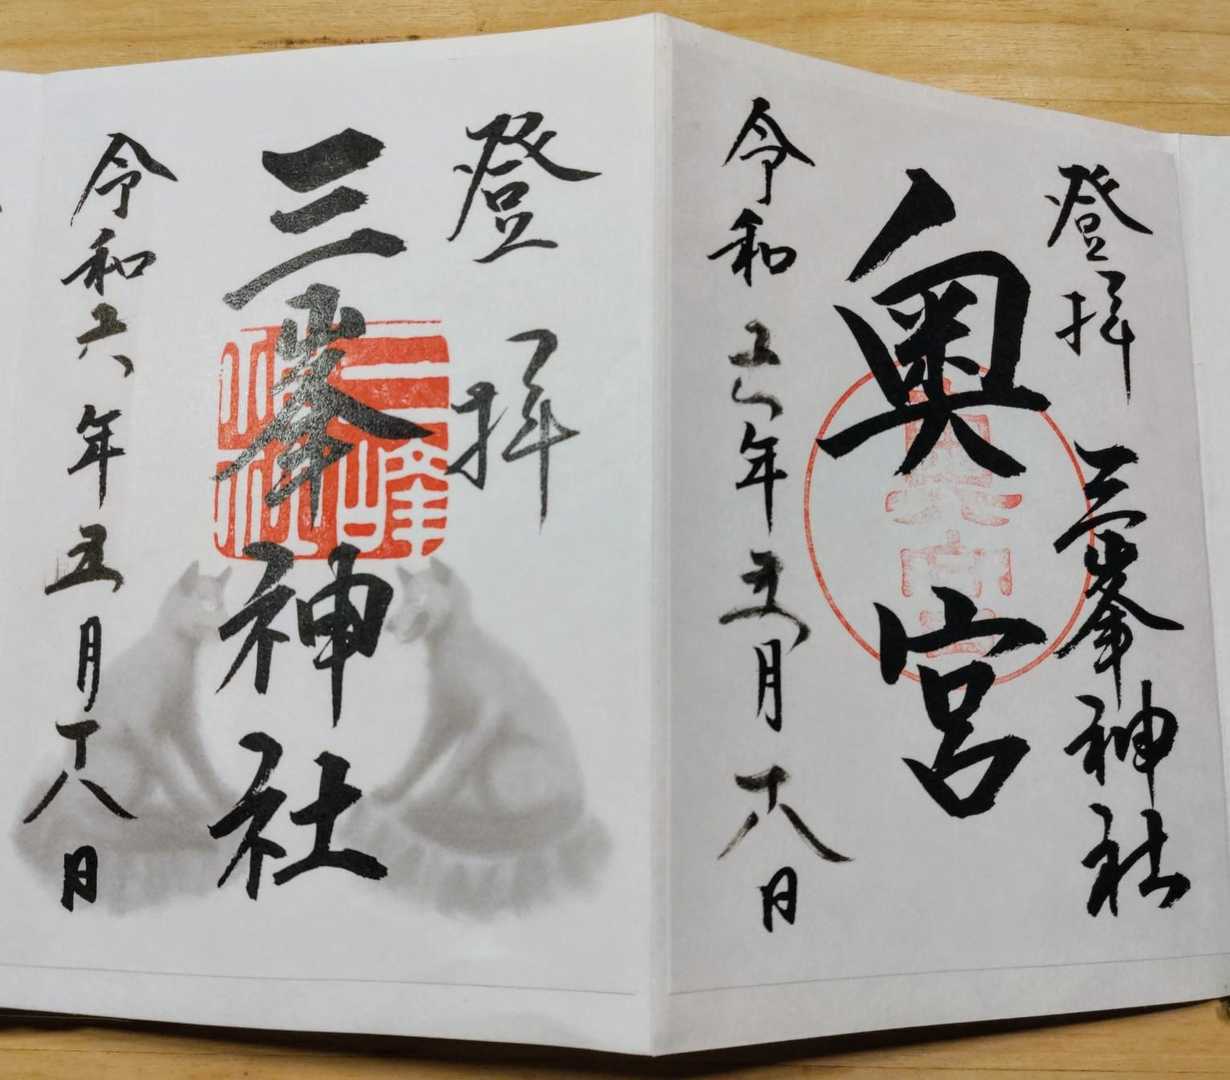 登拝 三峯神社
奥宮
令和六年五月十八日
登拝
三峯神社
令和六年五月十八日